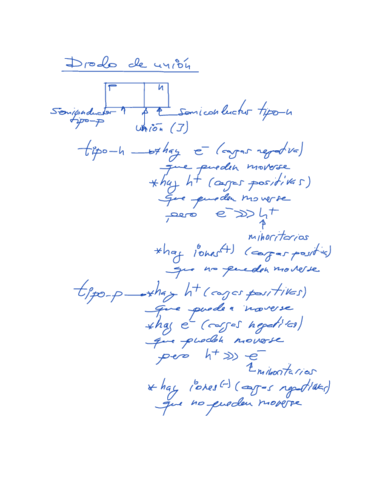 Diodo de unión
p n
Semiconductor tipo-p
semiconductor tipo-n
unión (J)
tipo-n → *hay e⁻ (cargas negativas)
que pueden moverse
*hay h⁺ (cargas positivas)
que pueden moverse
pero e⁻ >>> h⁺
minoritarios
*hay iones(+) (cargas positivas)
que no pueden moverse
tipo-p → *hay h⁺ (cargas positivas)
que pueden moverse
*hay e⁻ (cargas negativas)
que pueden moverse
pero h⁺ >>> e⁻
minoritarios
*hay iones(-) (cargas negativas)
que no pueden moverse